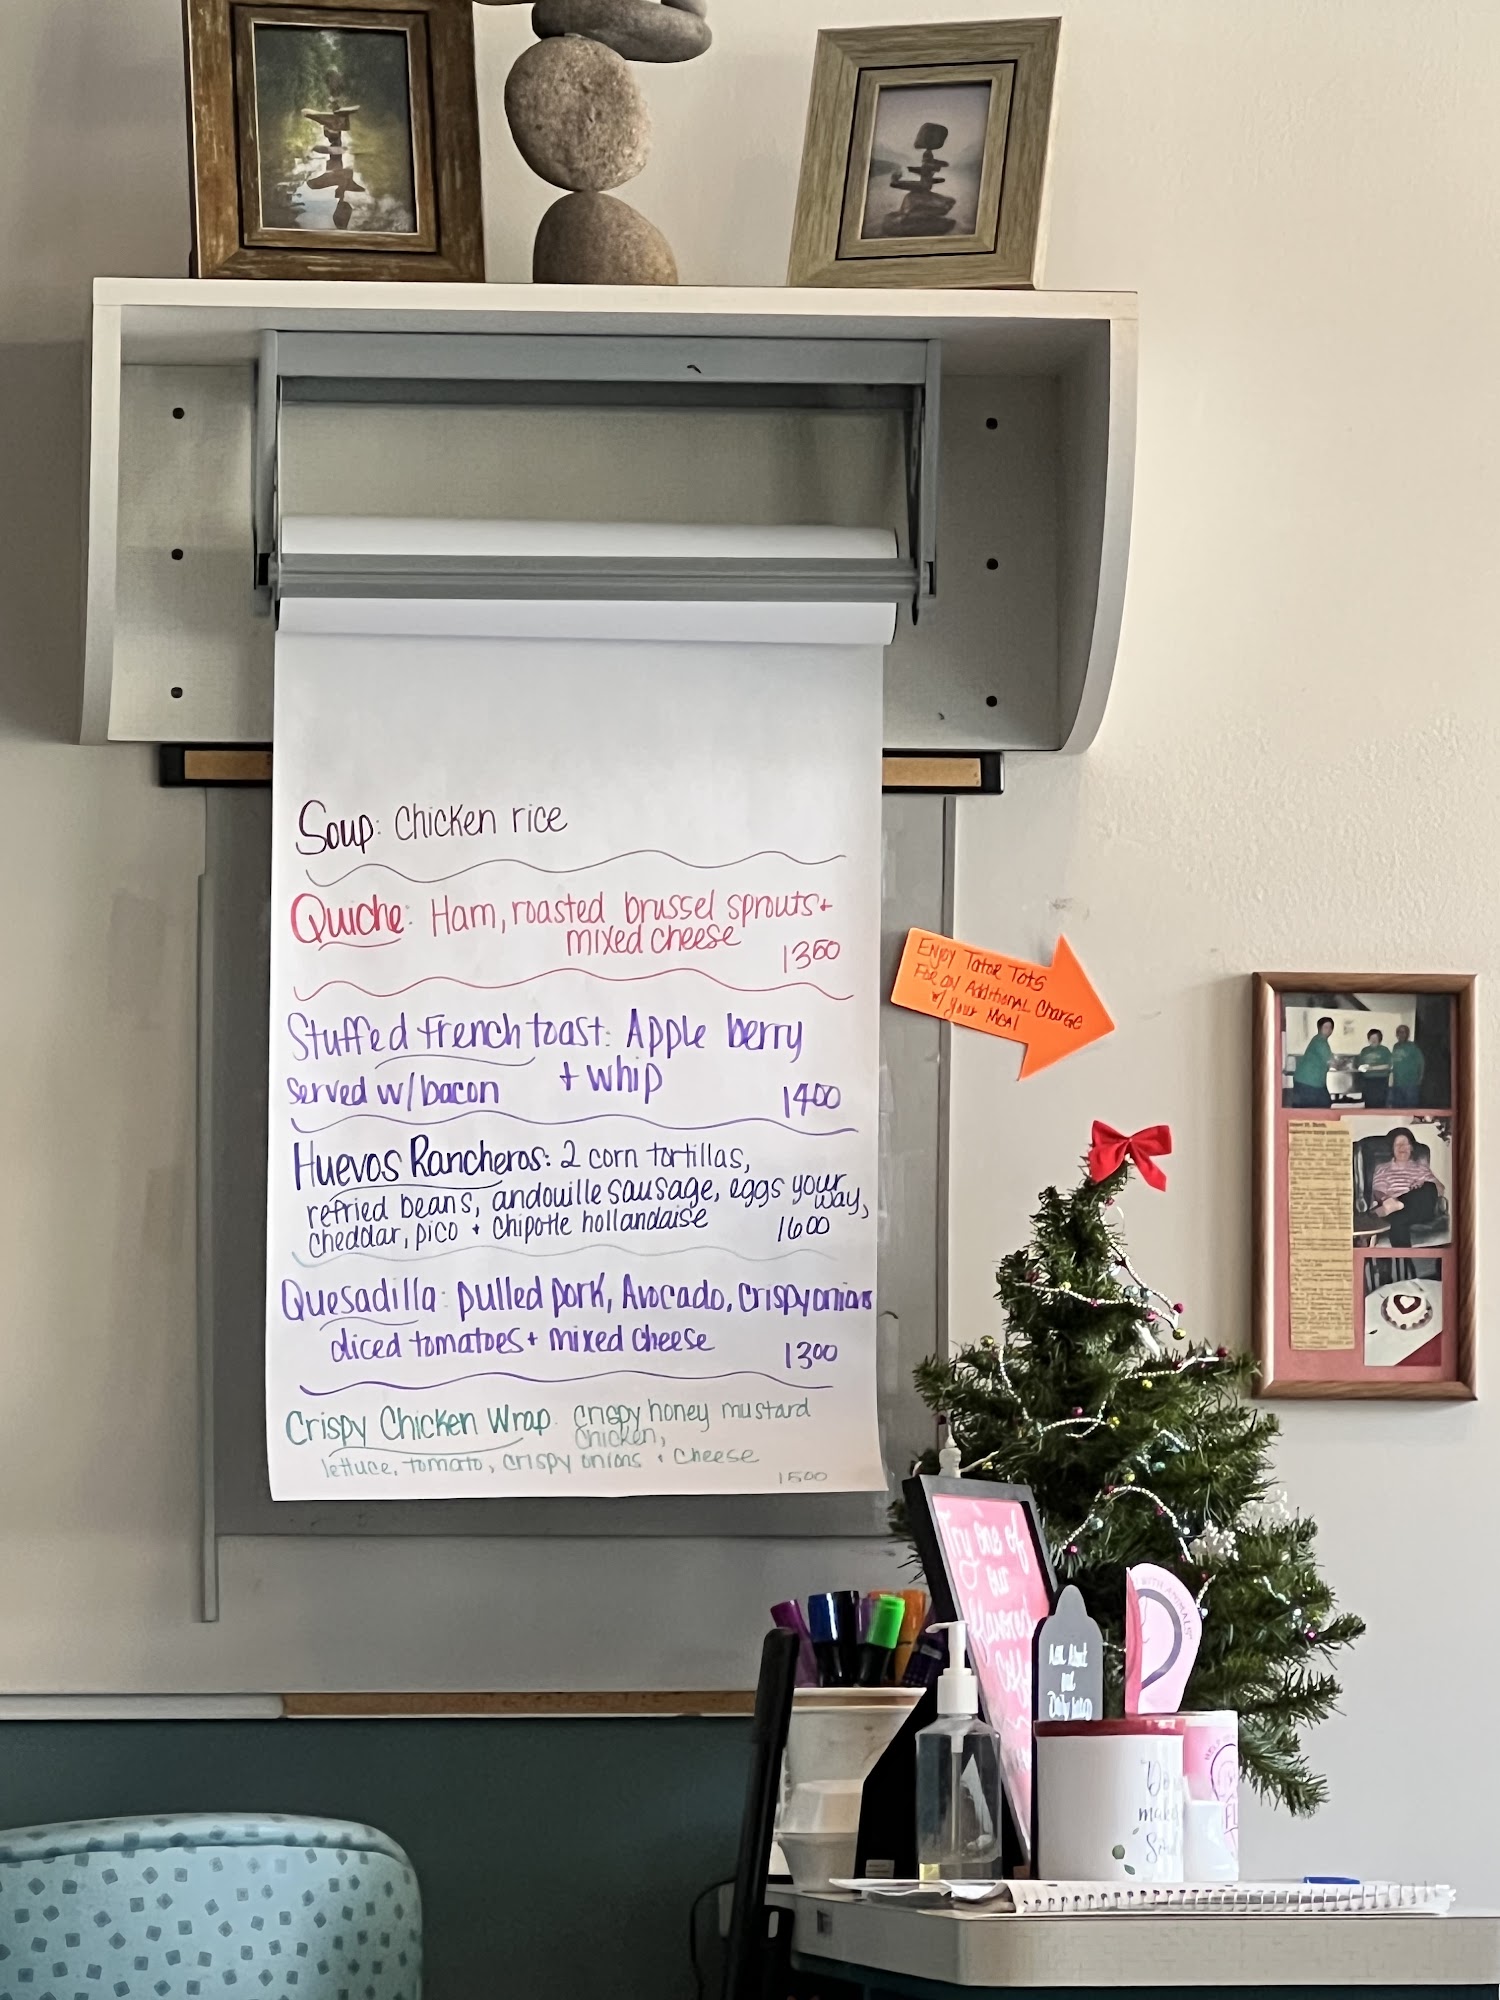 Soup: Chicken rice
Quiche: Ham, roasted brussel sprouts +
mixed cheese
1350
Stuffed French toast: Apple berry
+ whip
served w/bacon
1400
Huevos Rancheros: 2 corn tortillas,
refried beans, andouille sausage, eggs your way,
cheddar, pico + chipotle hollandaise
1600
Quesadilla: pulled pork, Avocado, crispy onions
diced tomatoes + mixed cheese
1300
Crispy Chicken Wrap: crispy honey mustard
chicken,
lettuce, tomato, crispy onions + cheese
1500
Enjoy Tator Tots
For an Additional Charge
w/ your Meal
Try one of
our
flavored
Ask About
our